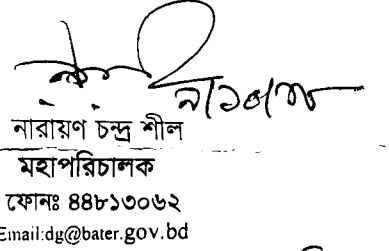 নারায়ণ চন্দ্র শীল
মহাপরিচালক
ফোনঃ ৪৪৮১৩০৬২
Email:dg@bater.gov.bd